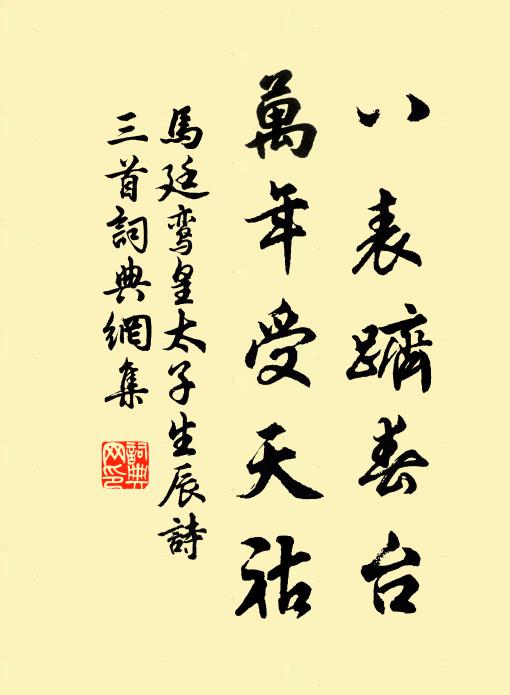 八表躋春台
萬年受天祜
馬廷鸾皇太子生辰詩
三首詞典網集
詞典网印